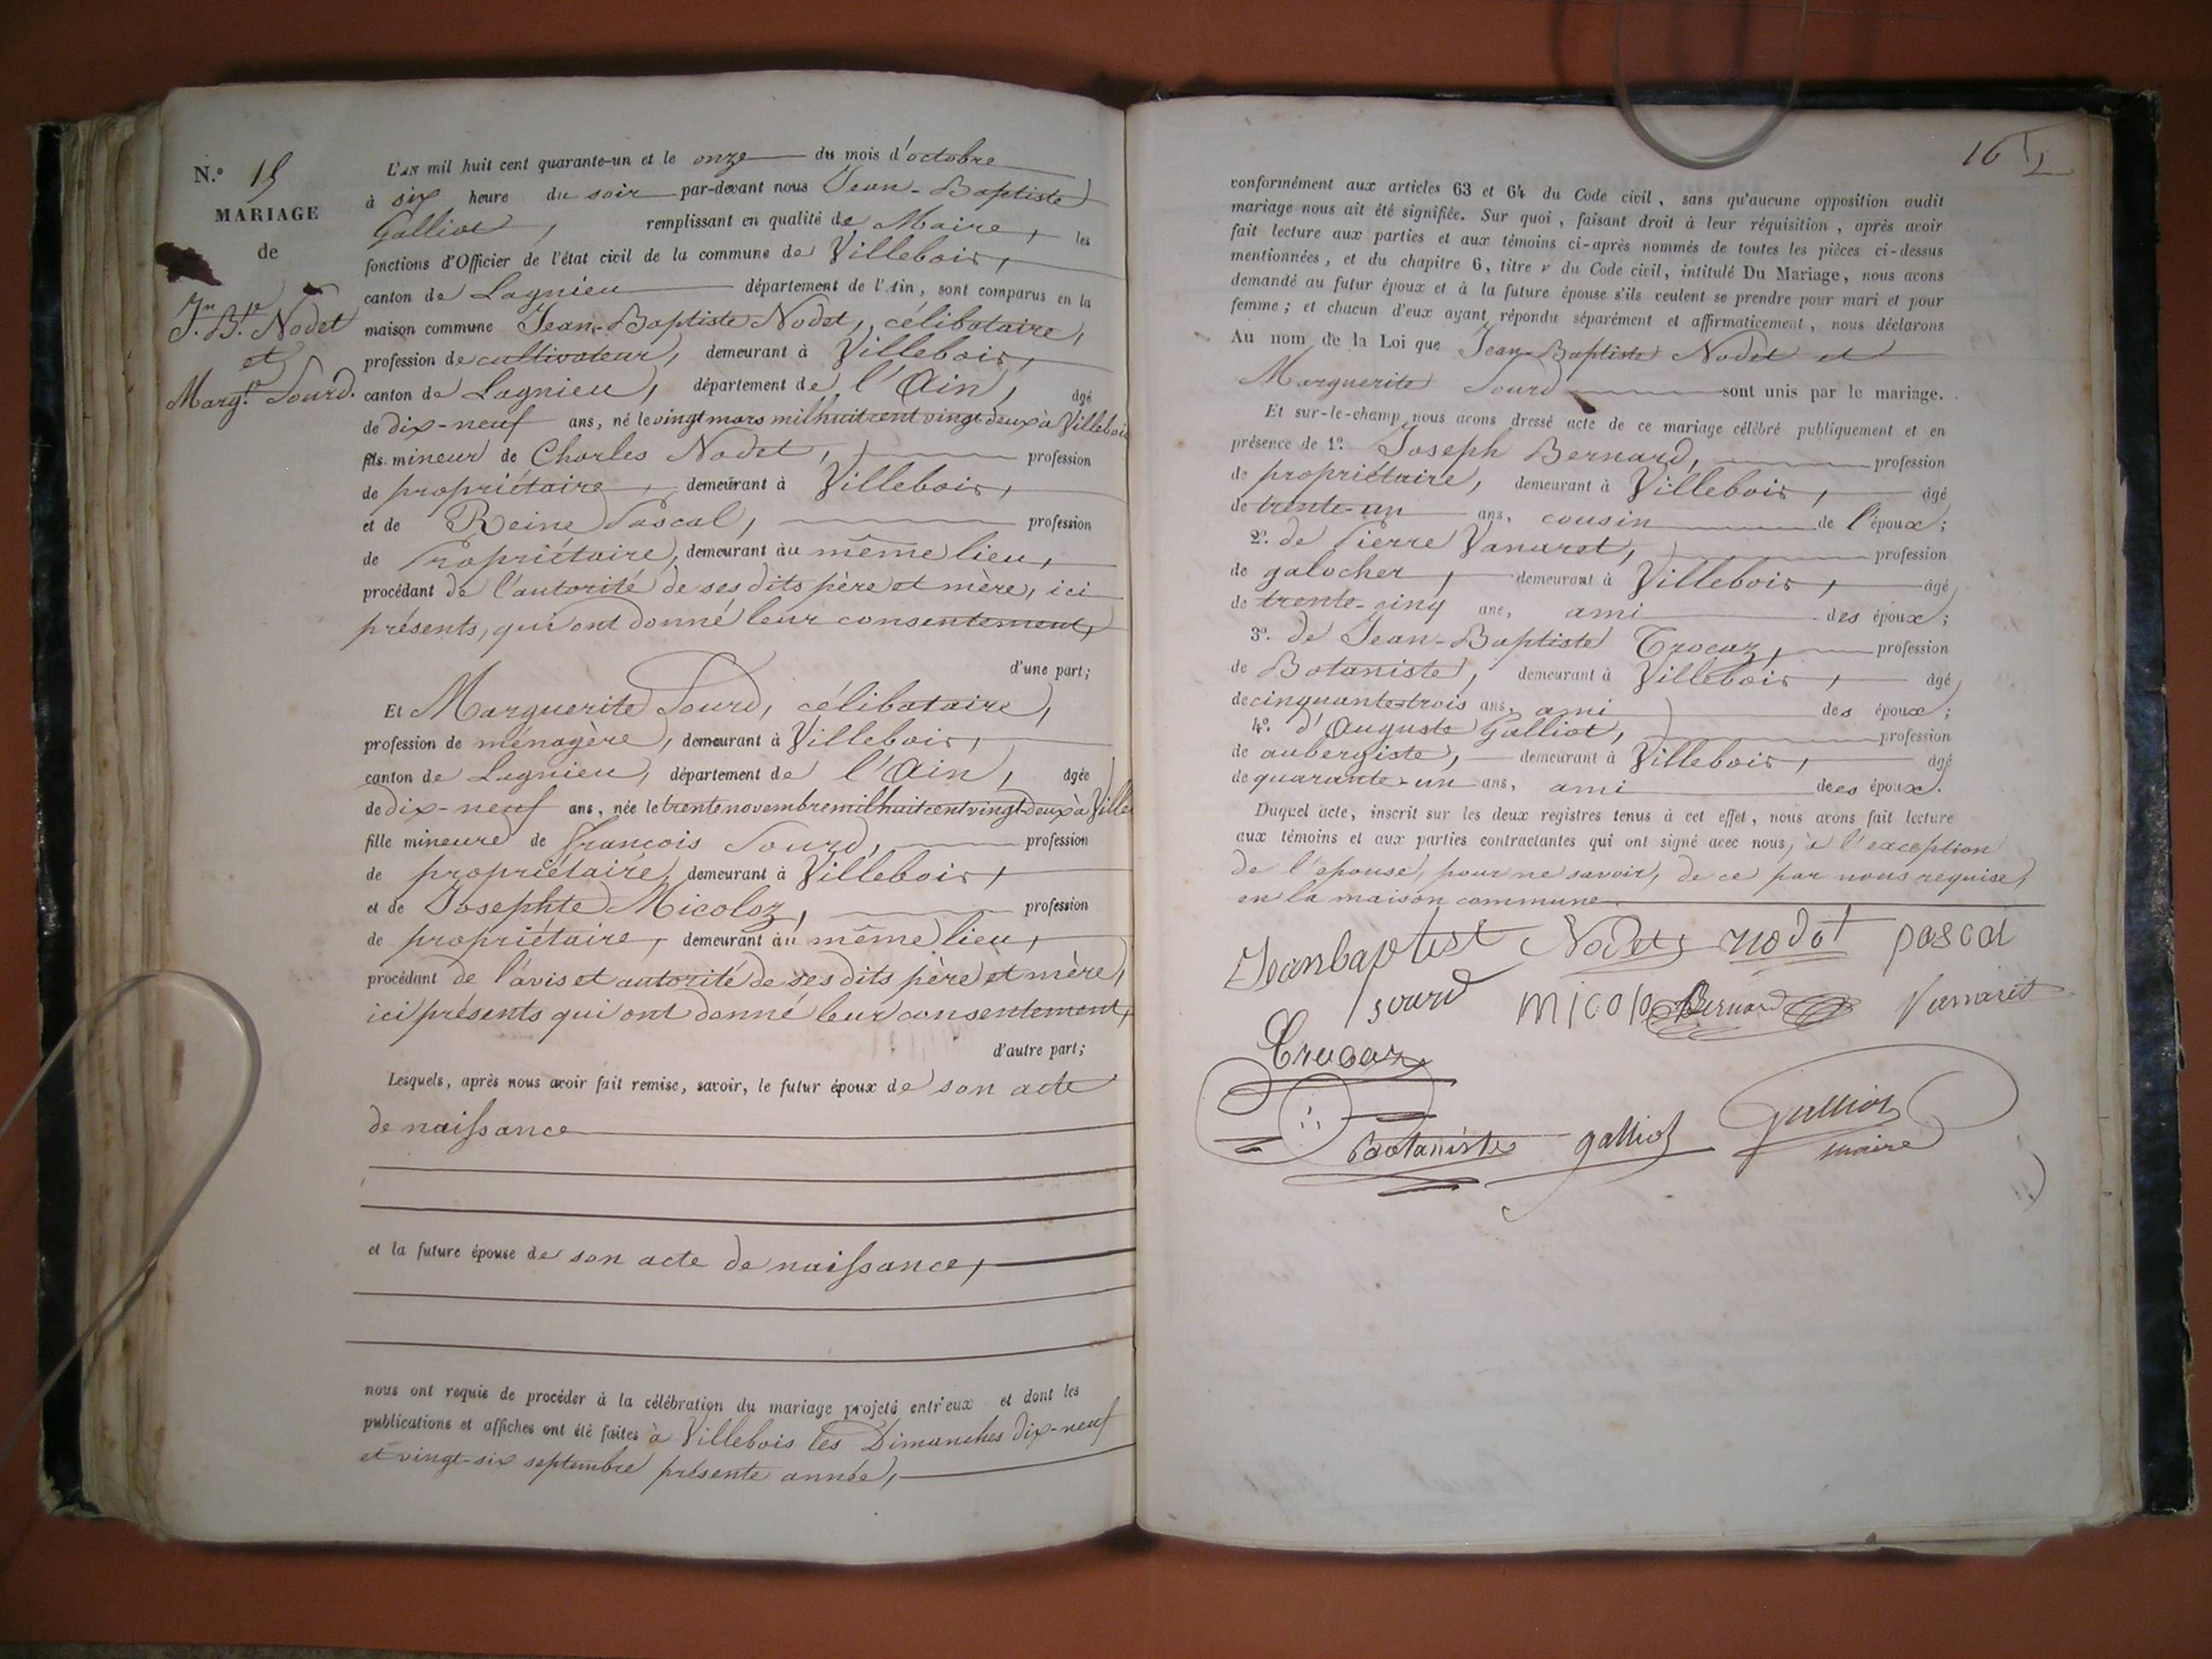 N.º 15
MARIAGE
de
J.n B.te Nodet
et
Marg.te Sourd.
L'AN mil huit cent quarante-un et le onze du mois d'octobre
à six heure du soir par-devant nous Jean-Baptiste
Galliot, remplissant en qualité de Maire, les
fonctions d'Officier de l'état civil de la commune de Villebois,
canton de Lagnieu département de l'Ain, sont comparus en la
maison commune Jean-Baptiste Nodet, célibataire,
profession de cultivateur, demeurant à Villebois,
canton de Lagnieu, département de l'Ain, âgé
de dix-neuf ans, né le vingt mars mil huit cent vingt-deux à Villebois
fils mineur de Charles Nodet, profession
de propriétaire, demeurant à Villebois,
et de Reine Pascal, profession
de Propriétaire, demeurant au même lieu,
procédant de l'autorité de ses dits père et mère, ici
présents, qui ont donné leur consentement,
d'une part;
Et Marguerite Sourd, célibataire,
profession de ménagère, demeurant à Villebois,
canton de Lagnieu, département de l'Ain, âgée
de dix-neuf ans, née le trente novembre mil huit cent vingt-deux à Ville
fille mineure de François Sourd, profession
de propriétaire, demeurant à Villebois,
et de Josephte Micoloz, profession
de propriétaire, demeurant au même lieu,
procédant de l'avis et autorité de ses dits père et mère,
ici présents qui ont donné leur consentement,
d'autre part;
Lesquels, après nous avoir fait remise, savoir, le futur époux de son acte
de naissance
et la future épouse de son acte de naissance,
nous ont requis de procéder à la célébration du mariage projeté entr'eux et dont les
publications et affiches ont été faites à Villebois les Dimanches dix-neuf
et vingt-six septembre présente année,
16
conformément aux articles 63 et 64 du Code civil, sans qu'aucune opposition audit
mariage nous ait été signifiée. Sur quoi, faisant droit à leur réquisition, après avoir
fait lecture aux parties et aux témoins ci-après nommés de toutes les pièces ci-dessus
mentionnées, et du chapitre 6, titre v du Code civil, intitulé Du Mariage, nous avons
demandé au futur époux et à la future épouse s'ils veulent se prendre pour mari et pour
femme; et chacun d'eux ayant répondu séparément et affirmativement, nous déclarons
Au nom de la Loi que Jean-Baptiste Nodet et
Marguerite Sourd sont unis par le mariage.
Et sur-le-champ nous avons dressé acte de ce mariage célébré publiquement et en
présence de 1º. Joseph Bernard, profession
de propriétaire, demeurant à Villebois, âgé
de trente-un ans, cousin de l'époux;
2º. de Pierre Vanaret, profession
de galocher, demeurant à Villebois, âgé
de trente-cinq ans, ami des époux;
3º. de Jean-Baptiste Crocaz, profession
de Botaniste, demeurant à Villebois, âgé
de cinquante-trois ans, ami des époux;
4º. d'Auguste Galliot, profession
de aubergiste, demeurant à Villebois, âgé
de quarante-un ans, ami des époux.
Duquel acte, inscrit sur les deux registres tenus à cet effet, nous avons fait lecture
aux témoins et aux parties contractantes qui ont signé avec nous, à l'exception
de l'épouse, pour ne savoir, de ce par nous requise,
en la maison commune.
Jeanbaptist Nodet nodot pascal
sourd micolo Bernard Vanaret
Crocaz
botaniste galliot Galliot
maire